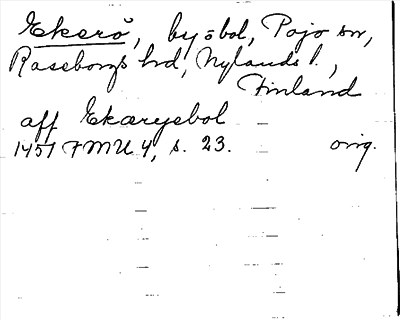 Ekerö, by o bol, Pojo sn,
Raseborgs hd, Nylands l.,
Finland
aff Ekaryebol
1451 FMU 4, s. 23. orig.